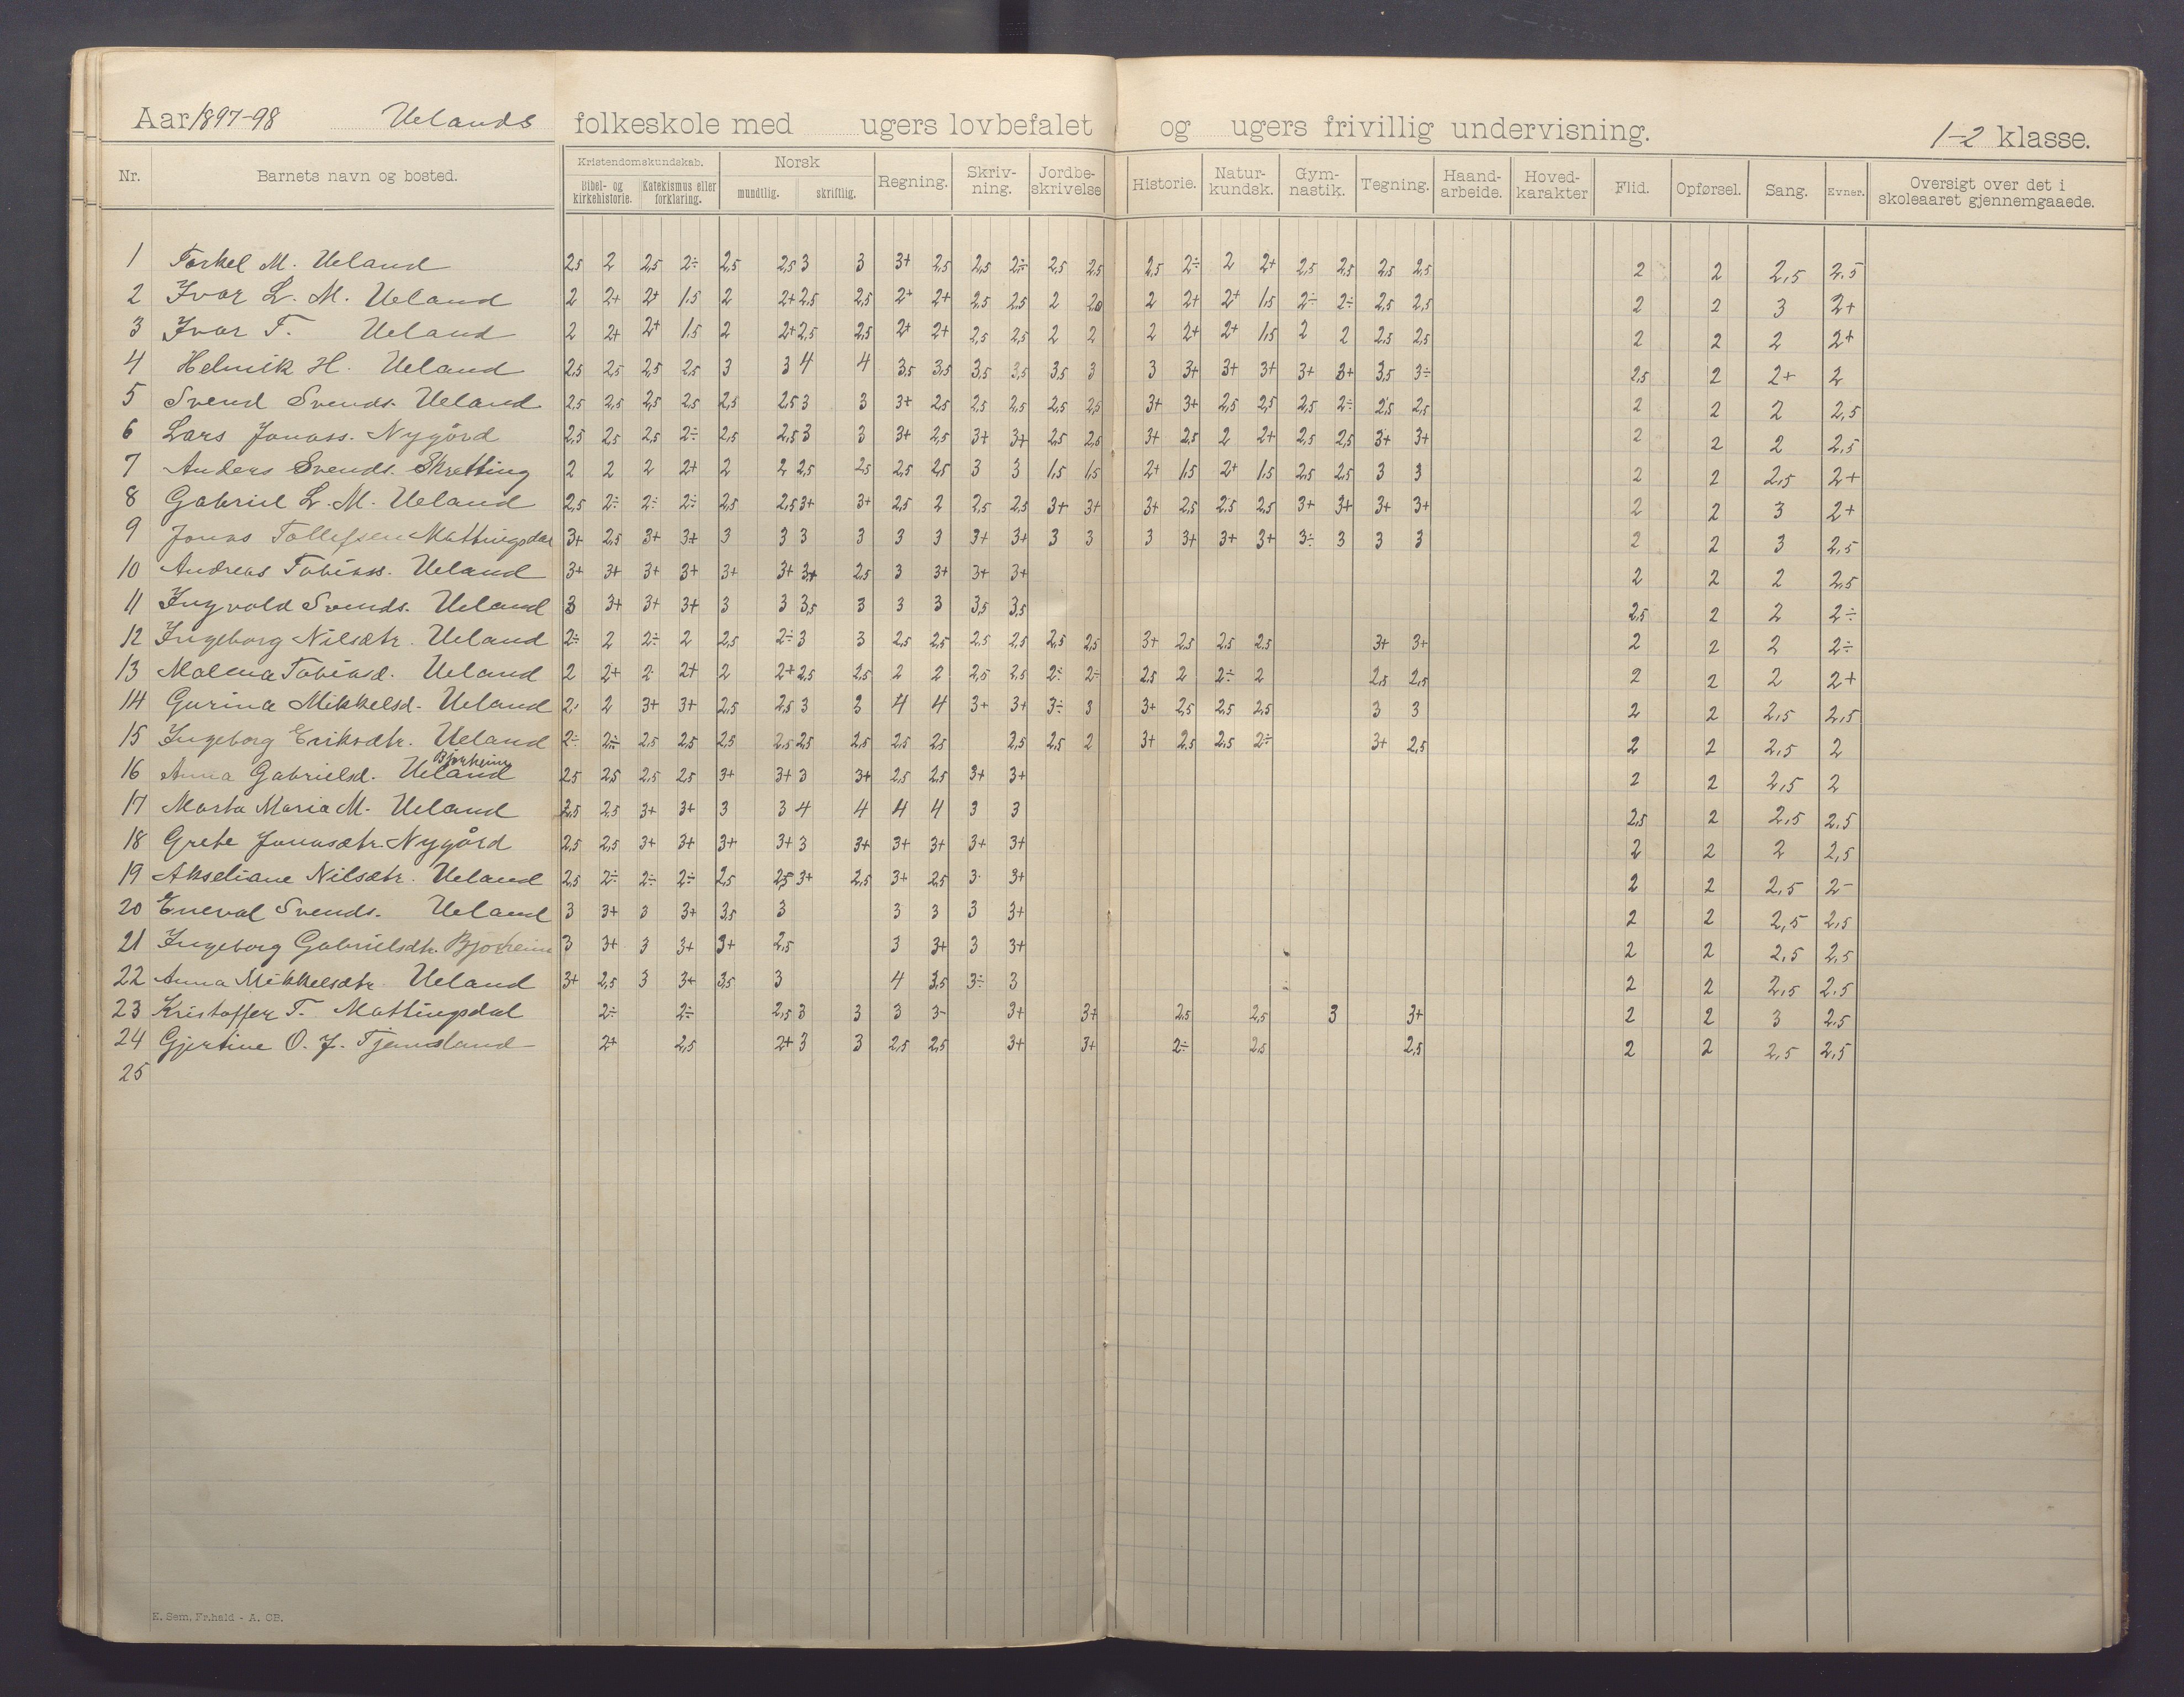 Aar 1897-98 Uelands folkeskole med ugers lovbefalet og ugers frivillig undervisning. 1-2 klasse.
Nr. Barnets navn og bosted. Kristendomskundskab. Bibel- og kirkehistorie. Katekismus eller forklaring. Norsk mundtlig. skriftlig. Regning. Skriv-ning. Jordbe-skrivelse Historie. Natur-kundsk. Gym-nastik. Tegning. Haand-arbeide. Hoved-karakter Flid. Opførsel. Sang. Evner. Oversigt over det i skoleaaret gjennemgaaede.
1 Torkel M. Ueland 2,5 2 2,5 2÷ 2,5 2,5 3 3 3+ 2,5 2,5 2÷ 2,5 2,5 2,5 2÷ 2 2+ 2,5 2,5 2,5 2,5 2 2 2,5 2,5
2 Ivar L. M. Ueland 2 2+ 2+ 1,5 2 2+ 2,5 2,5 2+ 2+ 2,5 2,5 2 2 2+ 2+ 1,5 2÷ 2÷ 2,5 2,5 2 2 3 2+
3 Ivar T. Ueland 2 2+ 2+ 1,5 2 2+ 2,5 2,5 2+ 2+ 2,5 2,5 2 2 2 2+ 2+ 1,5 2 2 2,5 2,5 2 2 2 2+
4 Helmik H. Ueland 2,5 2,5 2,5 2,5 3 3 4 4 3,5 3,5 3,5 3,5 3,5 3 3 3+ 3+ 3+ 3+ 3+ 3,5 3÷ 2,5 2 2+ 2
5 Svend Svends. Ueland 2,5 2,5 2,5 2,5 2,5 2,5 3 3 3+ 2,5 2,5 2,5 2,5 2,5 3+ 3+ 2,5 2,5 2,5 2÷ 2,5 2,5 2 2 2 2,5
6 Lars Jonass. Nygård 2,5 2,5 2,5 2÷ 2,5 2,5 3 3 3+ 2,5 3+ 3+ 2,5 2,5 3+ 2,5 2 2+ 2,5 2,5 3+ 3+ 2 2 2 2,5
7 Anders Svends. Skretting 2 2 2 2+ 2 2 2,5 2,5 2,5 2,5 3 3 1,5 1,5 2+ 1,5 2+ 1,5 2,5 2,5 3 3 2 2 2,5 2+
8 Gabriel L. M. Ueland 2,5 2÷ 2÷ 2÷ 2,5 2,5 3+ 3+ 2,5 2 2,5 2,5 3+ 3+ 3+ 2,5 2,5 2,5 3+ 3+ 3+ 3+ 2 2 3 2+
9 Jonas Tollefsen Mattingsdal 3+ 2,5 3+ 3+ 3 3 3 3 3 3 3+ 3+ 3 3 3 3+ 3+ 3+ 3÷ 3 3 3 2 2 3 2,5
10 Andreas Tobiass. Ueland 3+ 3+ 3+ 3+ 3+ 3+ 3+ 2,5 3 3+ 3+ 3+ 2 2 2 2,5
11 Ingvald Svends. Ueland 3 3+ 3+ 3+ 3 3 3,5 3 3 3 3,5 3,5 2,5 2 2 2÷
12 Ingeborg Nilsdtr. Ueland 2÷ 2 2÷ 2 2,5 2÷ 3 3 2,5 2,5 2,5 2,5 2,5 2,5 3+ 2,5 2,5 2,5 3+ 3+ 2 2 2 2÷
13 Malena Tobiasd. Ueland 2 2+ 2 2+ 2 2+ 2,5 2,5 2 2 2,5 2,5 2÷ 2÷ 2,5 2 2÷ 2 2,5 2,5 2 2 2 2+
14 Gurina Mikkelsd. Ueland 2÷ 2 3+ 3+ 2,5 2,5 3 3 4 4 3+ 3+ 3÷ 3 3+ 2,5 2,5 2,5 3 3 2 2 2,5 2,5
15 Ingeborg Eriksdtr. Ueland 2÷ 2÷ 2,5 2,5 2,5 2,5 2,5 2,5 2,5 2,5 2,5 2,5 2 3+ 2,5 2,5 2÷ 3+ 2,5 2 2 2,5 2
Bjorheim
16 Anna Gabrielsd. Ueland 2,5 2,5 2,5 2,5 3+ 3+ 3 3+ 2,5 2,5 3+ 3+ 2 2 2,5 2
17 Marta Maria M. Ueland 2,5 2,5 3+ 3+ 3 3 4 4 4 4 3 3 2,5 2 2,5 2,5
18 Grete Jonasdtr. Nygård 2,5 2,5 3+ 3+ 3+ 3+ 3 3+ 3+ 3+ 3+ 3+ 2 2 2 2,5
19 Akseliane Nilsdtr. Ueland 2,5 2÷ 2÷ 2÷ 2,5 2,5 3+ 2,5 3+ 2,5 3 3+ 2 2 2,5 2-
20 Eneval Svends. Ueland 3 3+ 3 3+ 3,5 3 3 3 3 3+ 2 2 2,5 2,5
21 Ingeborg Gabrielsdtr. Bjorheim 3 3+ 3 3+ 3+ 2,5 3 3+ 3 3+ 2 2 2,5 2,5
22 Anna Mikkelsdtr Ueland 3+ 2,5 3 3+ 3,5 3 4 3,5 3÷ 3 2 2 2,5 2,5
23 Kristoffer T. Mattingsdal 2÷ 2÷ 2,5 3 3 3 3- 3+ 3+ 2,5 2,5 3 3+ 2 2 3 2,5
24 Gjertine O. J. Tjemsland 2+ 2,5 2+ 3 3 2,5 2,5 3+ 3+ 2÷ 2,5 2,5 2 2 2,5 2,5
25
E. Sem, Fr.hald - A. OB.